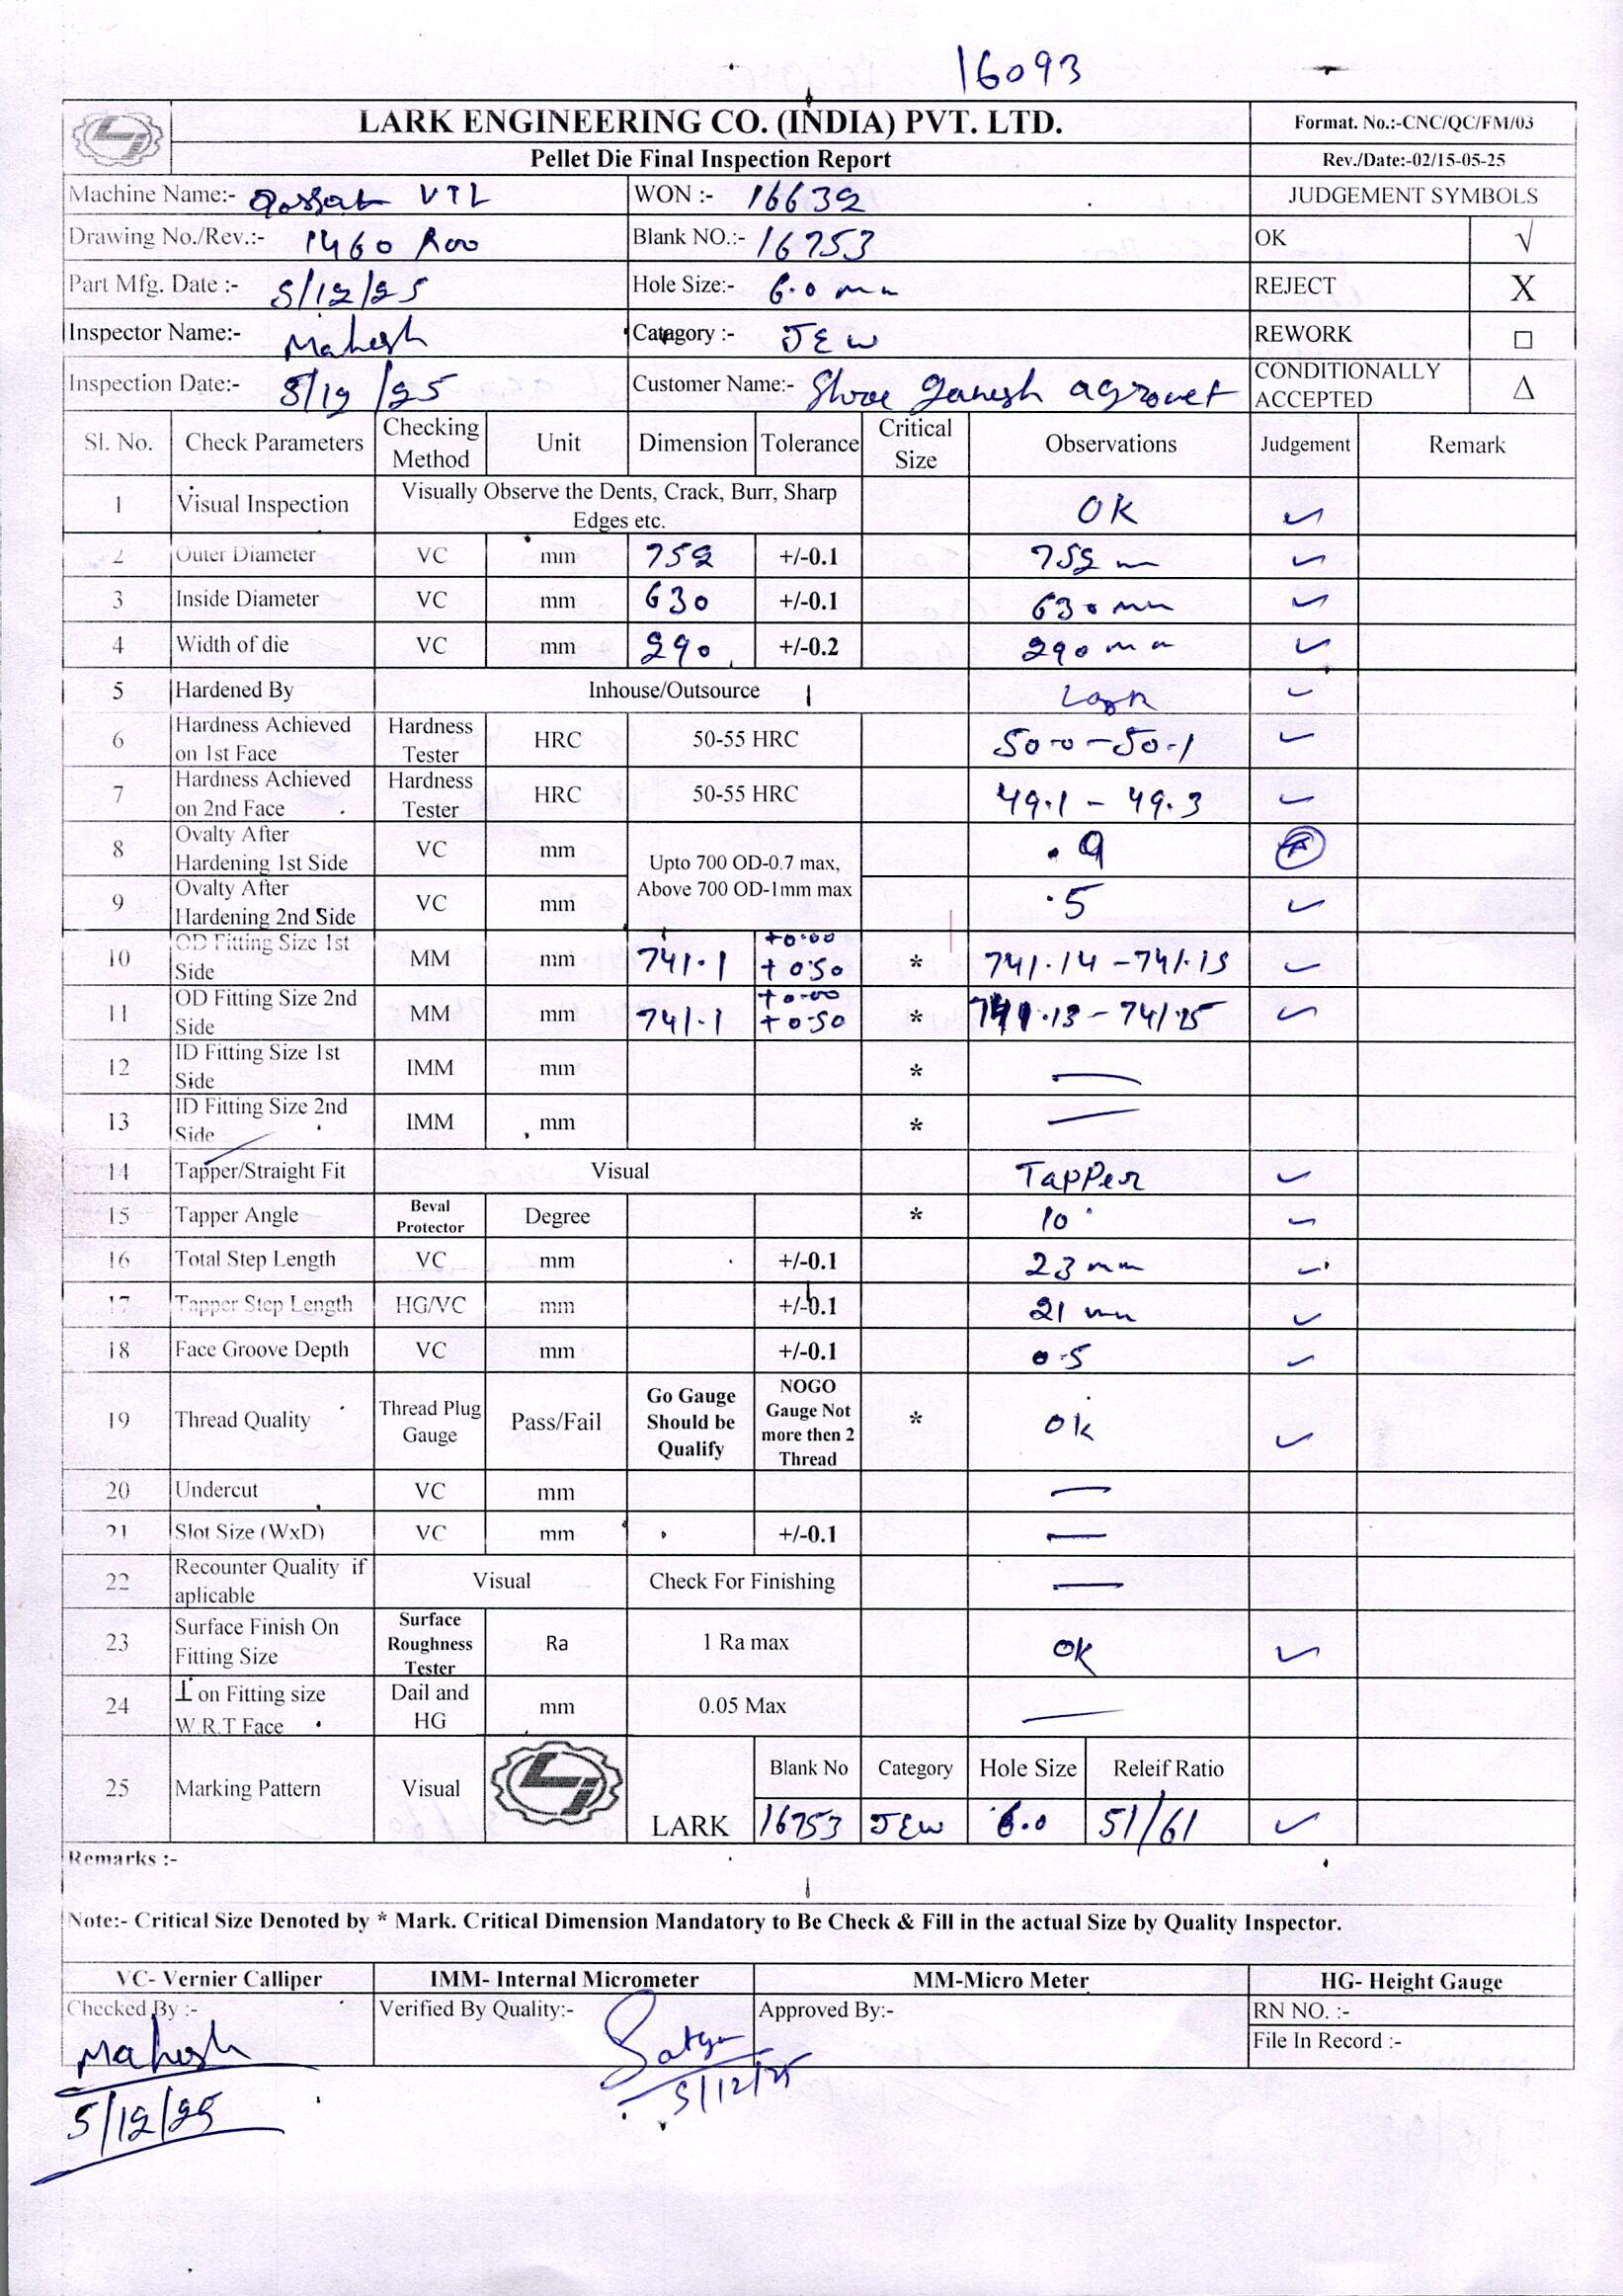 16093
LARK ENGINEERING CO. (INDIA) PVT. LTD.
Format. No.:-CNC/QC/FM/03
Pellet Die Final Inspection Report
Rev./Date:-02/15-05-25
Machine Name:- VTL WON :- 16632 JUDGEMENT SYMBOLS
Drawing No./Rev.:- 1460 R00 Blank NO.:- 16753 OK √
Part Mfg. Date :- 5/12/25 Hole Size:- 6.0 mm REJECT X
Inspector Name:- Mahesh Catagory :- JEW REWORK □
Inspection Date:- 5/12/25 Customer Name:- Shree ganesh agrovet CONDITIONALLY ACCEPTED Δ
Sl. No. Check Parameters Checking Method Unit Dimension Tolerance Critical Size Observations Judgement Remark
1 Visual Inspection Visually Observe the Dents, Crack, Burr, Sharp Edges etc. OK ✓
2 Outer Diameter VC mm 752 +/-0.1 752 mm ✓
3 Inside Diameter VC mm 630 +/-0.1 630 mm ✓
4 Width of die VC mm 290 +/-0.2 290 mm ✓
5 Hardened By Inhouse/Outsource Lark ✓
6 Hardness Achieved on 1st Face Hardness Tester HRC 50-55 HRC 50.0-50.1 ✓
7 Hardness Achieved on 2nd Face Hardness Tester HRC 50-55 HRC 49.1 - 49.3 ✓
8 Ovalty After Hardening 1st Side VC mm Upto 700 OD-0.7 max, Above 700 OD-1mm max .9
9 Ovalty After Hardening 2nd Side VC mm .5 ✓
10 OD Fitting Size 1st Side MM mm 741.1 +0.00 +0.50 * 741.14 - 741.15 ✓
11 OD Fitting Size 2nd Side MM mm 741.1 +0.00 +0.50 * 741.13 - 741.15 ✓
12 ID Fitting Size 1st Side IMM mm * —
13 ID Fitting Size 2nd Side IMM mm * —
14 Tapper/Straight Fit Visual Tapper ✓
15 Tapper Angle Beval Protector Degree * 10° ✓
16 Total Step Length VC mm +/-0.1 23 mm ✓
17 Tapper Step Length HG/VC mm +/-0.1 21 mm ✓
18 Face Groove Depth VC mm +/-0.1 0.5 ✓
19 Thread Quality Thread Plug Gauge Pass/Fail Go Gauge Should be Qualify NOGO Gauge Not more then 2 Thread * OK ✓
20 Undercut VC mm —
21 Slot Size (WxD) VC mm +/-0.1 —
22 Recounter Quality if aplicable Visual Check For Finishing —
23 Surface Finish On Fitting Size Surface Roughness Tester Ra 1 Ra max OK ✓
24 ⊥ on Fitting size W.R.T Face Dail and HG mm 0.05 Max —
25 Marking Pattern Visual LARK Blank No Category Hole Size Releif Ratio
16753 JEW 6.0 51/61 ✓
Remarks :-
Note:- Critical Size Denoted by * Mark. Critical Dimension Mandatory to Be Check & Fill in the actual Size by Quality Inspector.
VC- Vernier Calliper IMM- Internal Micrometer MM-Micro Meter HG- Height Gauge
Checked By :- Verified By Quality:- Approved By:- RN NO. :-
File In Record :-
Mahesh Satya
5/12/25 5/12/25